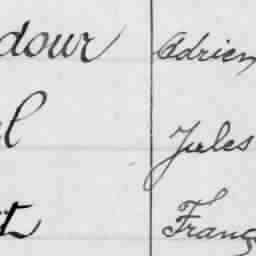 dour Adrien
l Jules
t Franç